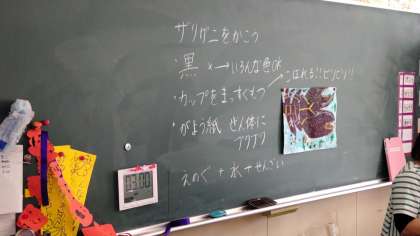 ザリガニをかこう
・黒 × → いろんな色水
・カップをまっすぐもつ こぼれる!!ビリビリ!!
・がよう紙 ぜん体に
プクプク
えのぐ + 水 + せんざい